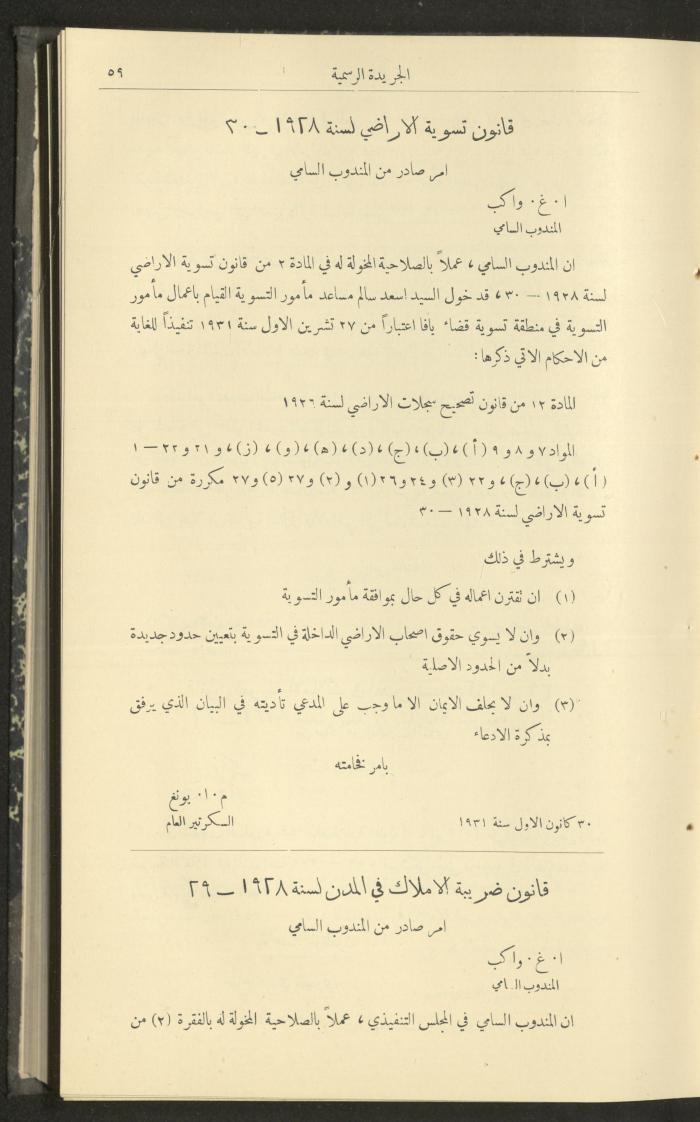 الجريدة الرسمية ٥٩
قانون تسوية الاراضي لسنة ١٩٢٨ ـ ٣٠
امر صادر من المندوب السامي
ا٠ غ٠ واكب
المندوب السامي
ان المندوب السامي ، عملاً بالصلاحية المخولة له في المادة ٢ من قانون تسوية الاراضي
لسنة ١٩٢٨ — ٣٠ ، قد خول السيد اسعد سالم مساعد مأمور التسوية القيام باعمال مأمور
التسوية في منطقة تسوية قضاء يافا اعتباراً من ٢٧ تشرين الاول سنة ١٩٣١ تنفيذاً للغاية
من الاحكام الاتي ذكرها :
المادة ١٢ من قانون تصحيح سجلات الاراضي لسنة ١٩٢٦
المواد ٧ و ٨ و ٩ ( أ ) ، (ب) ، (ج) ، (د) ، (ه) ، (و) ، (ز) ، و ٢١ و ٢٢ — ١
( أ ) ، (ب) ، (ج) ، و ٢٢ (٣) و ٢٤ و ٢٦ (١) و (٢) و ٢٧ (٥) و ٢٧ مكررة من قانون
تسوية الاراضي لسنة ١٩٢٨ — ٣٠
ويشترط في ذلك
(١) ان تقترن اعماله في كل حال بموافقة مأمور التسوية
(٢) وان لا يسوي حقوق اصحاب الاراضي الداخلة في التسوية بتعيين حدود جديدة
بدلاً من الحدود الاصلية
(٣) وان لا يحلف الايمان الا ما وجب على المدعي تأديته في البيان الذي يرفق
بمذكرة الادعاء
بامر فخامته
م٠ ا٠ يونغ
٣٠ كانون الاول سنة ١٩٣١ السكرتير العام
قانون ضريبة الاملاك في المدن لسنة ١٩٢٨ ـ ٢٩
امر صادر من المندوب السامي
ا٠ غ٠ واكب
المندوب السامي
ان المندوب السامي في المجلس التنفيذي ، عملاً بالصلاحية المخولة له بالفقرة (٢) من